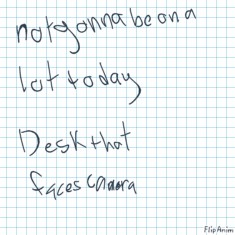 not gonna be on a
lot today
Desk that
faces camara
FlipAnim